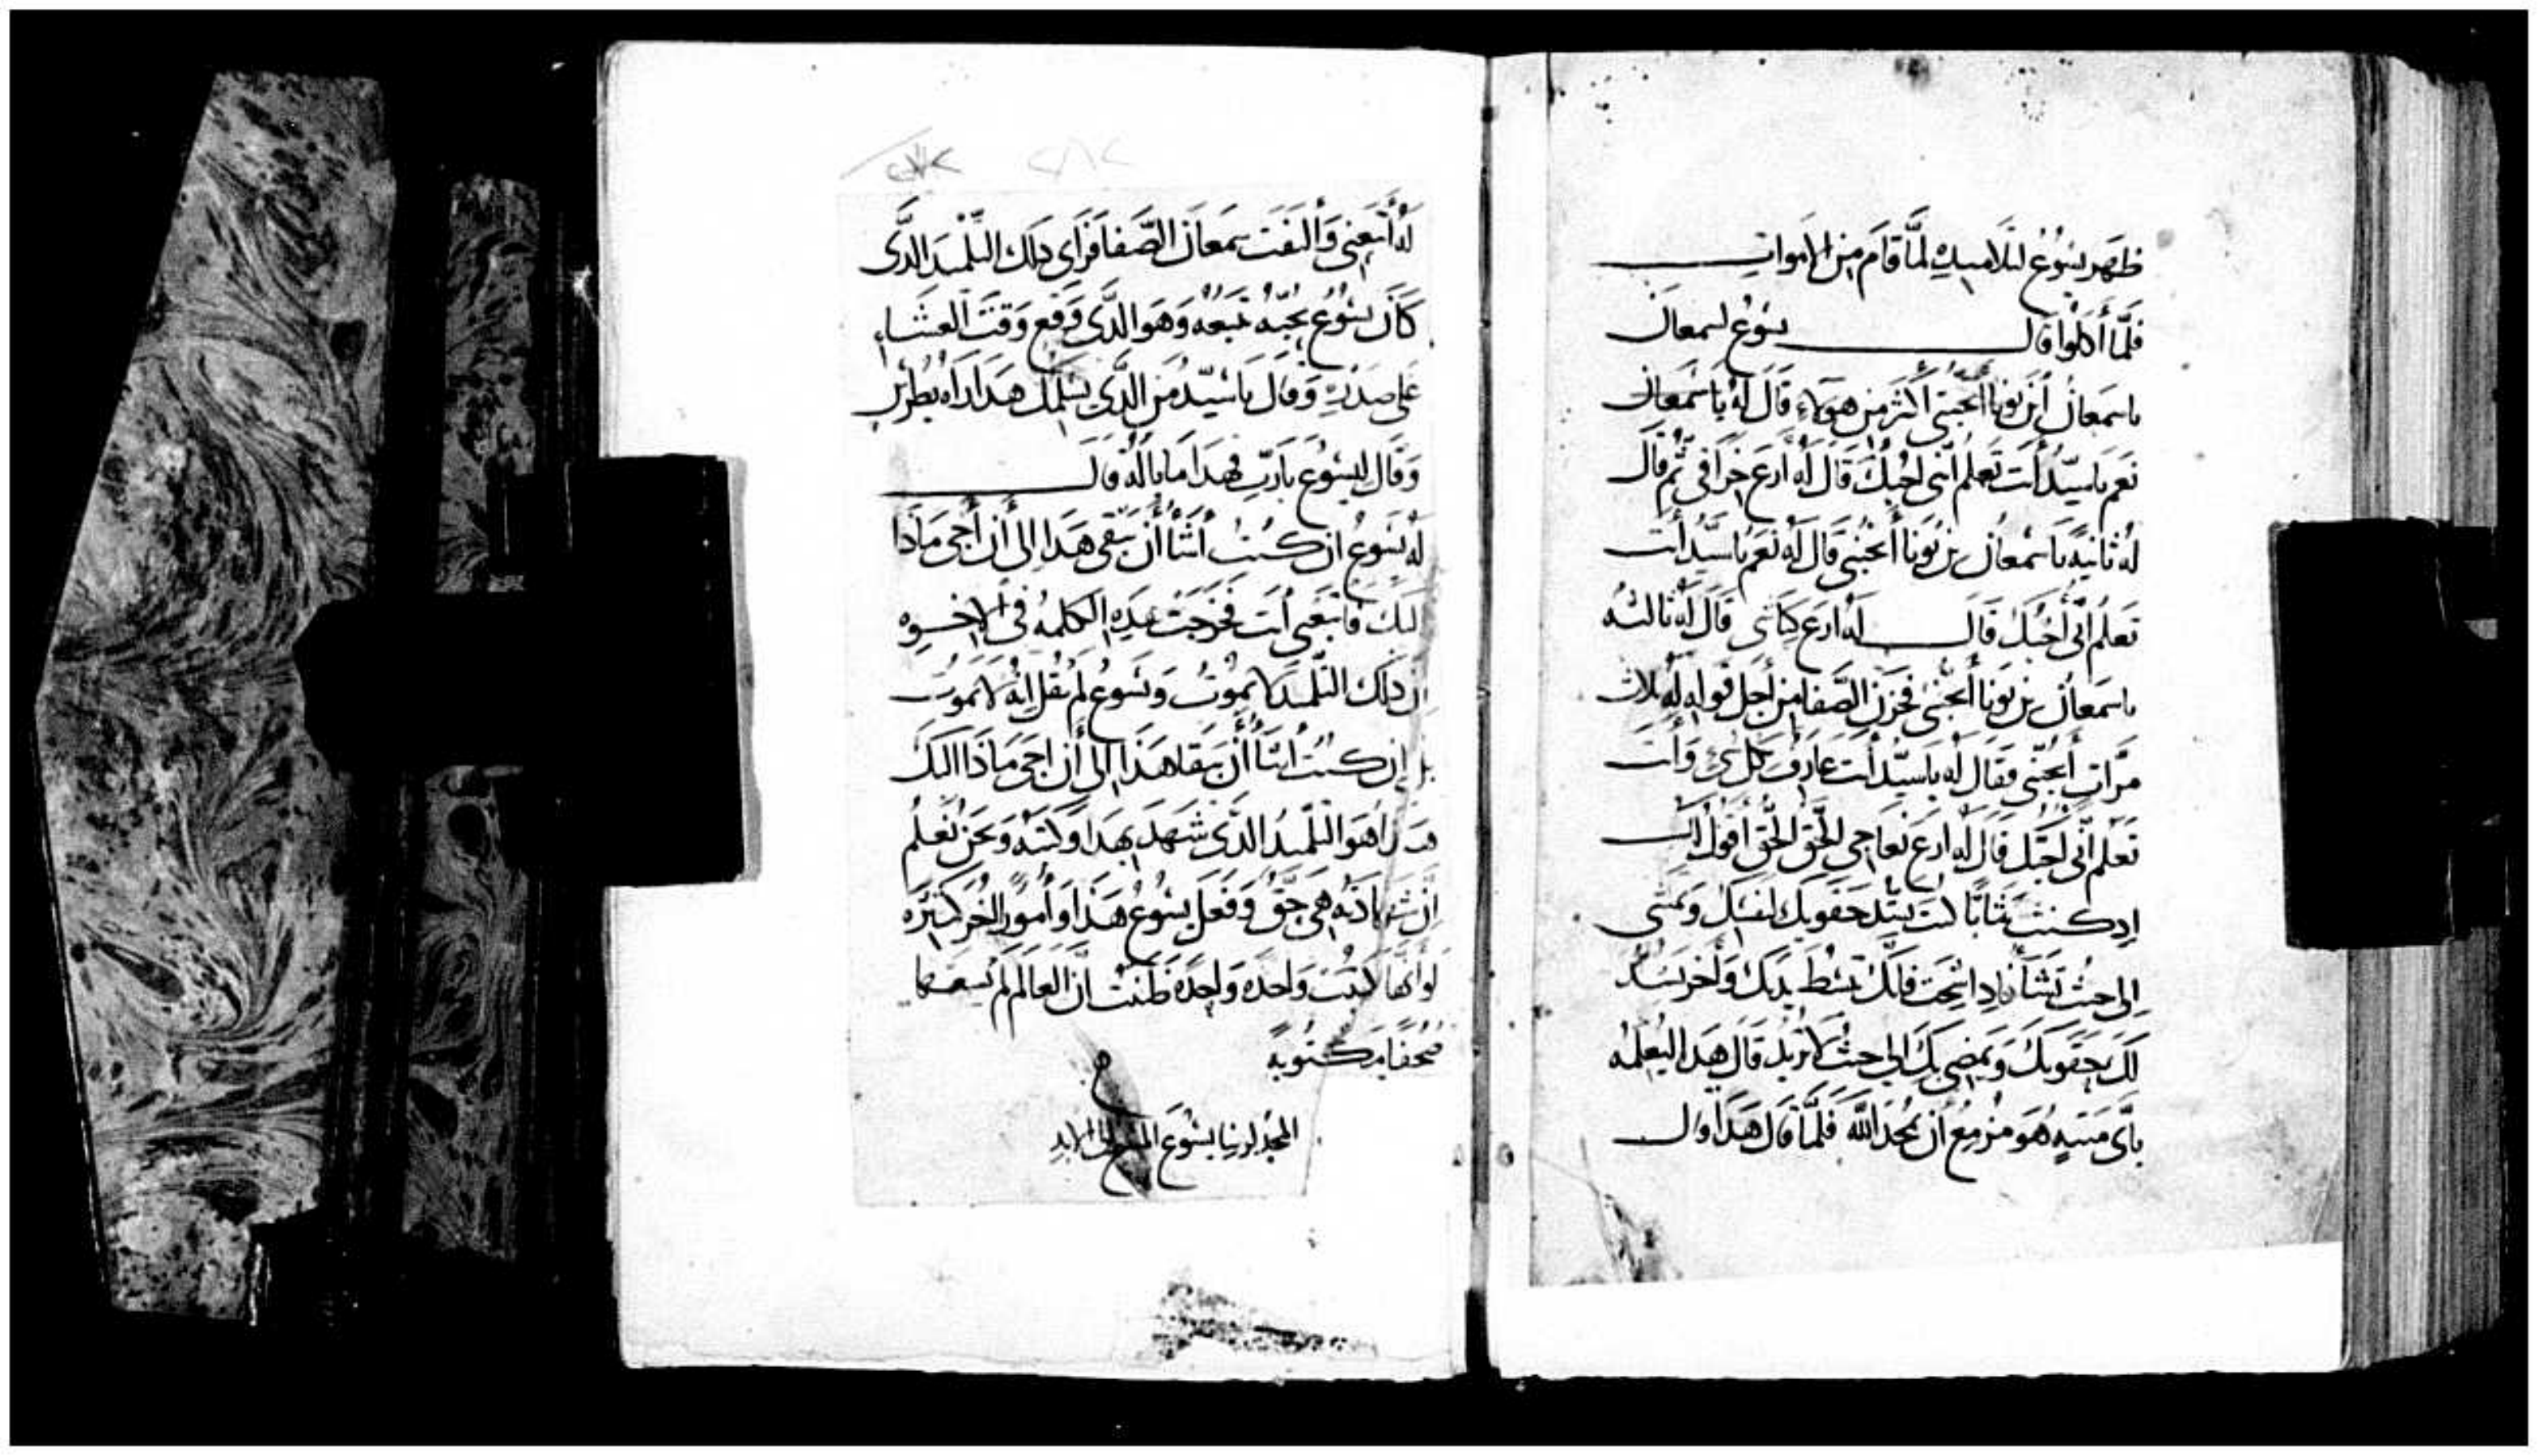 ظهر يسوع لتلاميده لمّا قام من الاموات
فلمّا أكلوا قال يسوع لسمعان
ياسمعان ابن يونا أتحبني أكثر من هولاء قال له ياسمعان
نعم ياسيّد أنت تعلم أنى احبك قال له ارع خرافى ثم قال
له ثانية ياسمعان بن يونا أتحبني قال له نعم ياسيّد أنت
تعلم أنى أحبك قال له ارع كباشى قال له ثالثه
ياسمعان بن يونا أتحبني فحزن الصّفا من أجل قوله له ثلاث
مرّات أتحبّني فقال له ياسيّد أنت عارف بكل شى وأنت
تعلم أنى احبّك قال له ارع نعاجى الحق الحق أقول لك
اد كنت شابّا كنت تشد حقويك لنفسك وتمشى
الى حيث تشأ فادا شخت فانّك تبسط يديك وأخر يشد
لك حقويك ويمضى بك الى حيث لا تريد قال هدا ليعلمه
بأى ميتهٍ هو مزمع أن يمجد الله فلمّا قال هدا قال
له أتبعني وألتفت سمعان الصّفا فراى دلك التلميد الدّى
كان يسوع يحبّه تبعه وهو الدّى وقع وقت العشاء
على صدره وقال ياسيّد من الدّى يسلمك هدا اد راه بطرس
وقال ليسوع يارب فهدا ما باله قال
له يسوع ان كنت أشأ أن يبقى هدا الى أن أجى مادا
لك فاتبعنى أنت فخرجت هده الكلمه فى الاخوه
ان دلك التلميد لا يموت ويسوع لم يقل انه لا يموت
بل ان كنت أشأ أن يبقا هدا الى أن اجى مادا لك
هو التلميد الدّى شهد بهدا وكتبه ونحن نعلم
ان شهادته هى حق وفعل يسوع هدا وأمورا أخر كثيره
لو أنها كتبت واحده واحده ظننت ان العالم لم يسعها
صحفا مكتوبه
المجد لربنا يسوع المسيح الى الابد